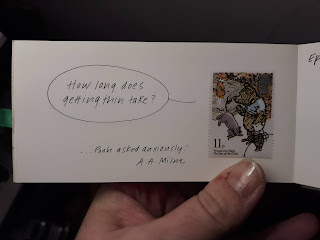 How long does
getting thin take?
...Pooh asked anxiously."
A.A. Milne
11p